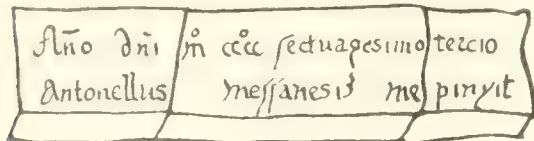 Año dñi m̊ cc̊cc sectuagesimo tercio
Antonellus messanesis me pinxit